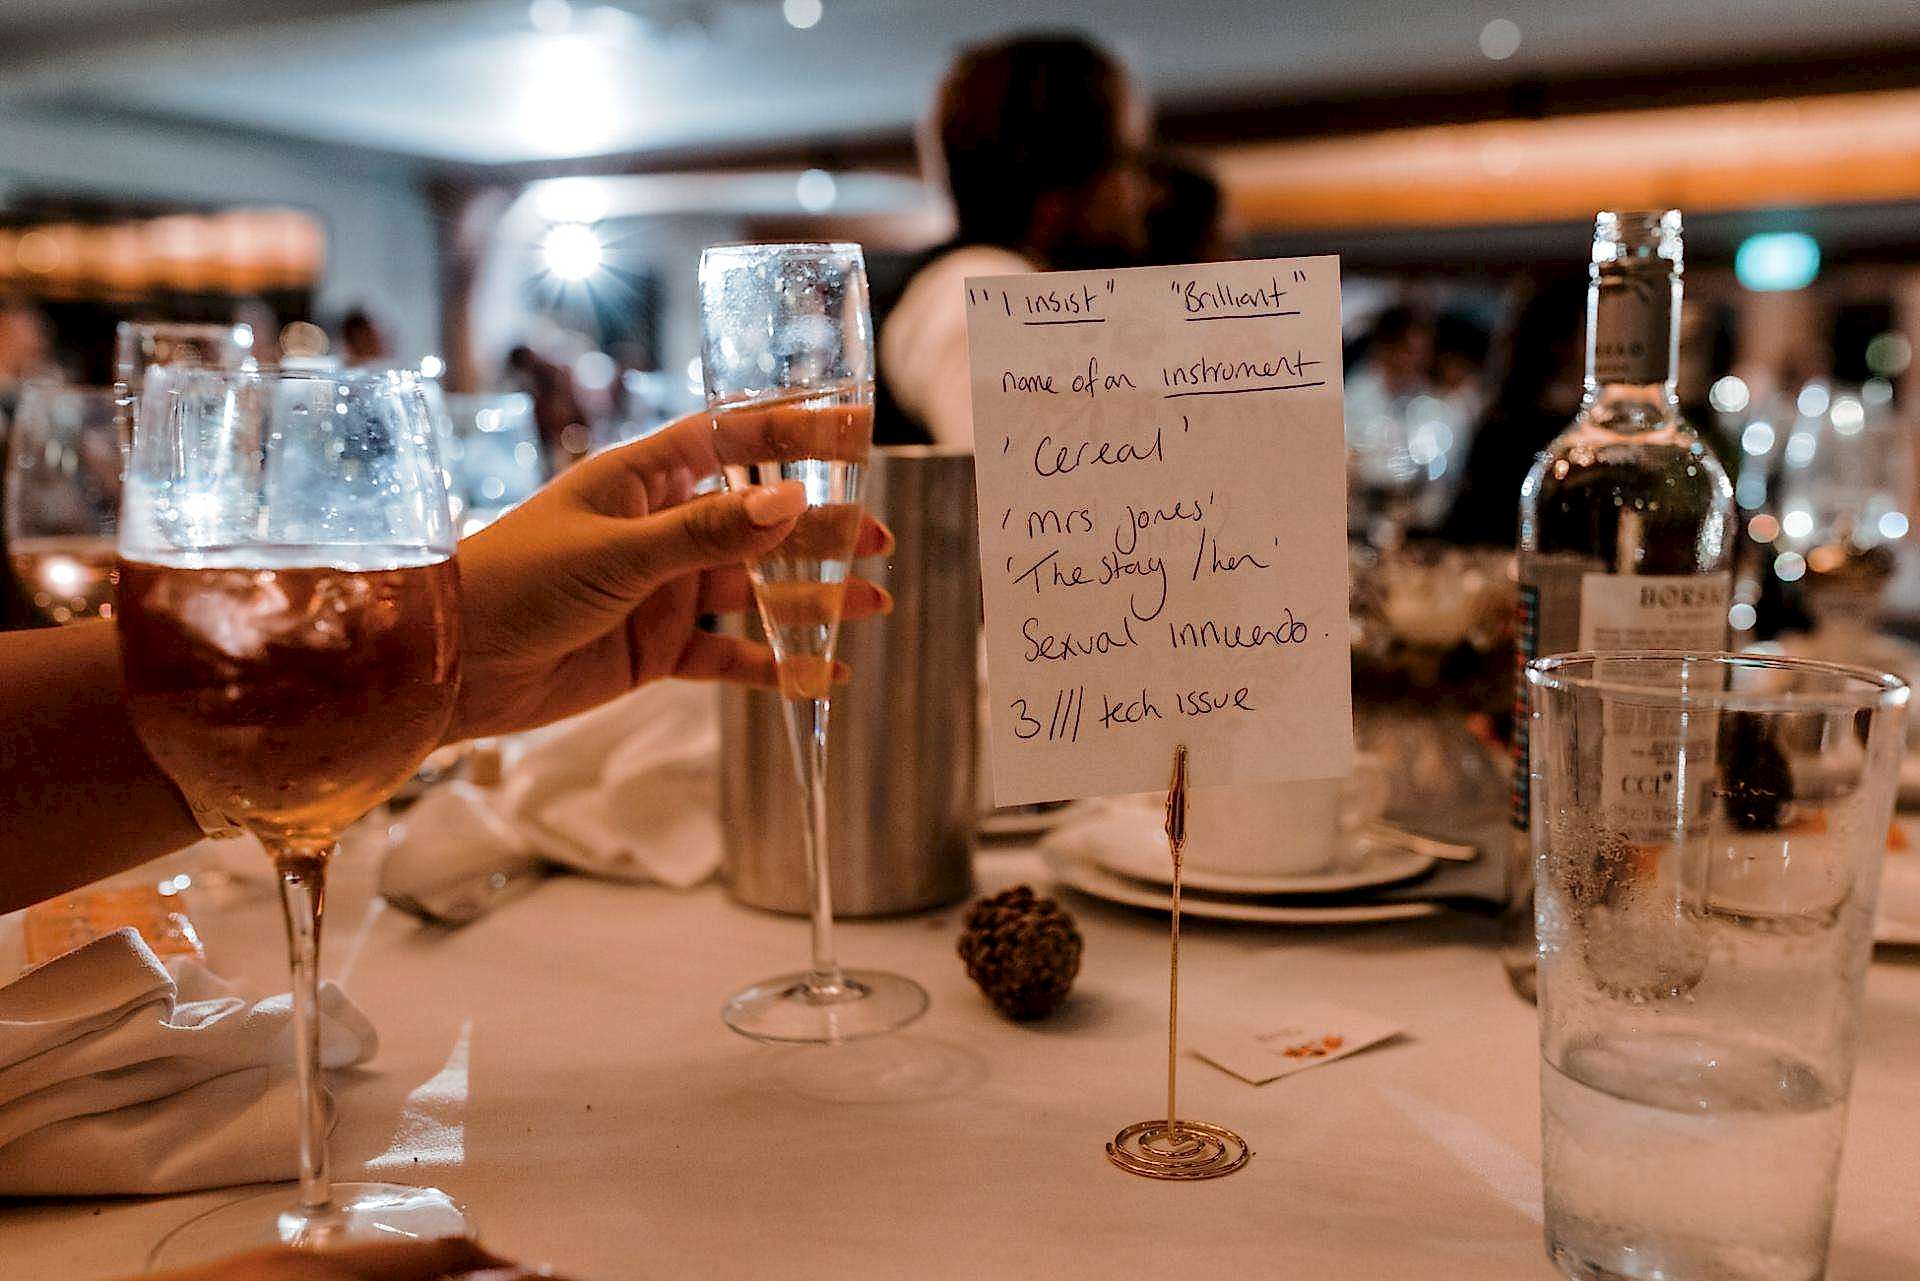 "I insist" "Brilliant"
name of an instrument
'Cereal'
'Mrs Jones'
'The stag / hen'
Sexual innuendo.
3 /// tech issue
CCI